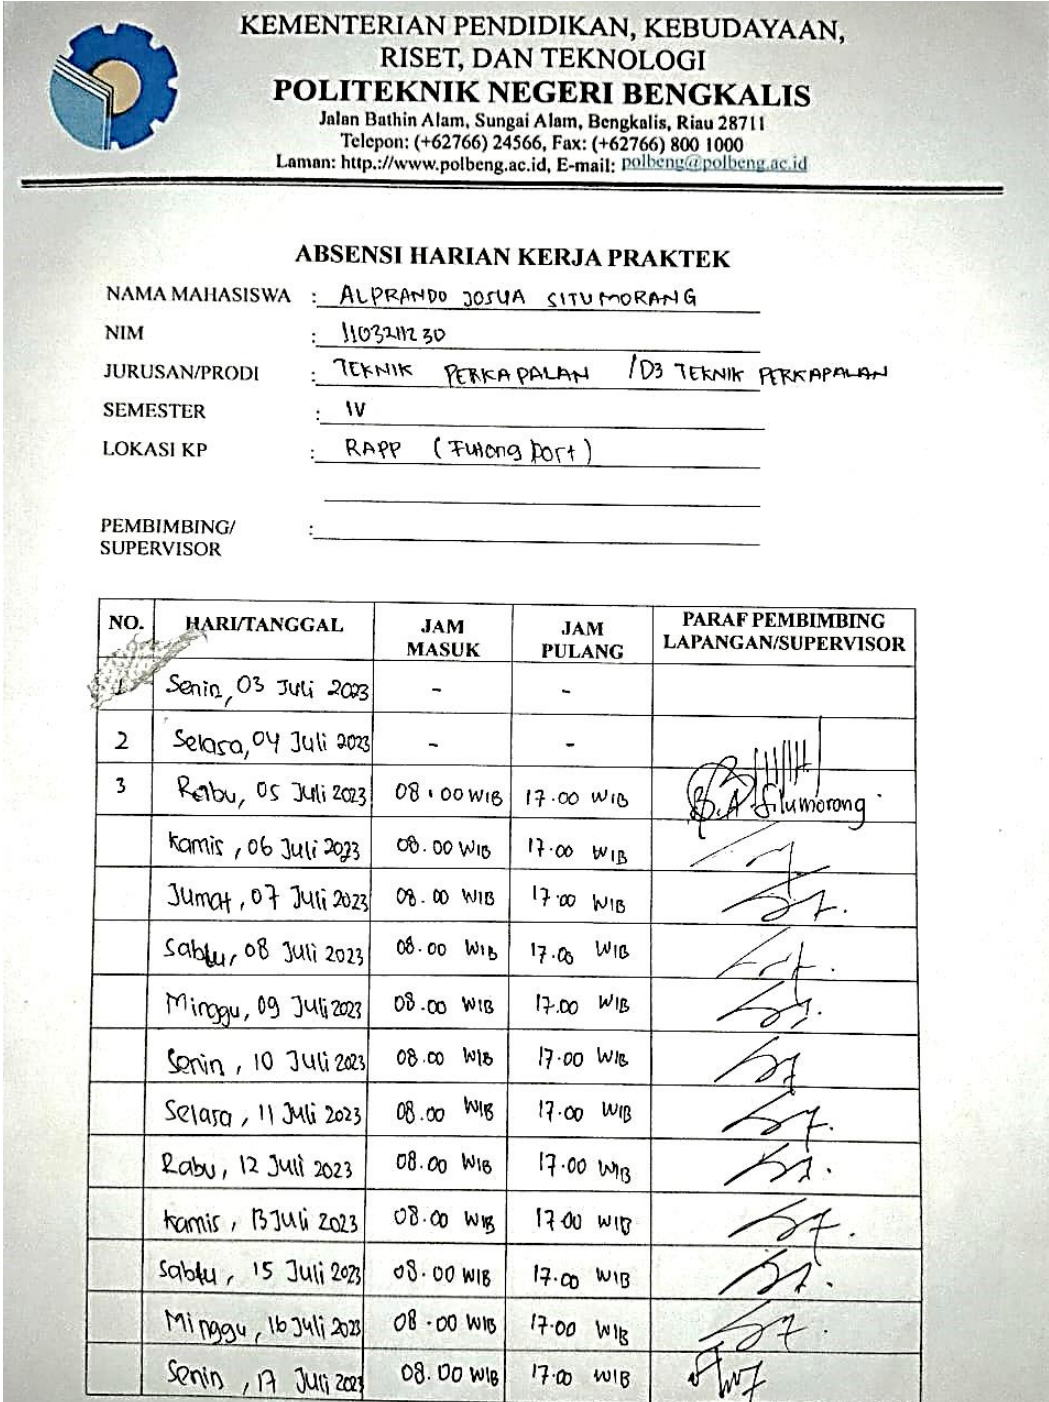 KEMENTERIAN PENDIDIKAN, KEBUDAYAAN,
RISET, DAN TEKNOLOGI
POLITEKNIK NEGERI BENGKALIS
Jalan Bathin Alam, Sungai Alam, Bengkalis, Riau 28711
Telepon: (+62766) 24566, Fax: (+62766) 800 1000
Laman: http.://www.polbeng.ac.id, E-mail: polbeng@polbeng.ac.id
ABSENSI HARIAN KERJA PRAKTEK
NAMA MAHASISWA : ALPRANDO JOSUA SITUMORANG
NIM : 1103211230
JURUSAN/PRODI : TEKNIK PERKAPALAN /D3 TEKNIK PERKAPALAN
SEMESTER : IV
LOKASI KP : RAPP (Futong port)
PEMBIMBING/ :
SUPERVISOR
NO. HARI/TANGGAL JAM MASUK JAM PULANG PARAF PEMBIMBING LAPANGAN/SUPERVISOR
1 Senin, 03 Juli 2023 - -
2 Selasa, 04 Juli 2023 - -
3 Rabu, 05 Juli 2023 08.00 WIB 17.00 WIB B.A Situmorang
Kamis, 06 Juli 2023 08.00 WIB 17.00 WIB
Jumat, 07 Juli 2023 08.00 WIB 17.00 WIB
Sabtu, 08 Juli 2023 08.00 WIB 17.00 WIB
Minggu, 09 Juli 2023 08.00 WIB 17.00 WIB
Senin, 10 Juli 2023 08.00 WIB 17.00 WIB
Selasa, 11 Juli 2023 08.00 WIB 17.00 WIB
Rabu, 12 Juli 2023 08.00 WIB 17.00 WIB
Kamis, 13 Juli 2023 08.00 WIB 17.00 WIB
Sabtu, 15 Juli 2023 08.00 WIB 17.00 WIB
Minggu, 16 Juli 2023 08.00 WIB 17.00 WIB
Senin, 17 Juli 2023 08.00 WIB 17.00 WIB